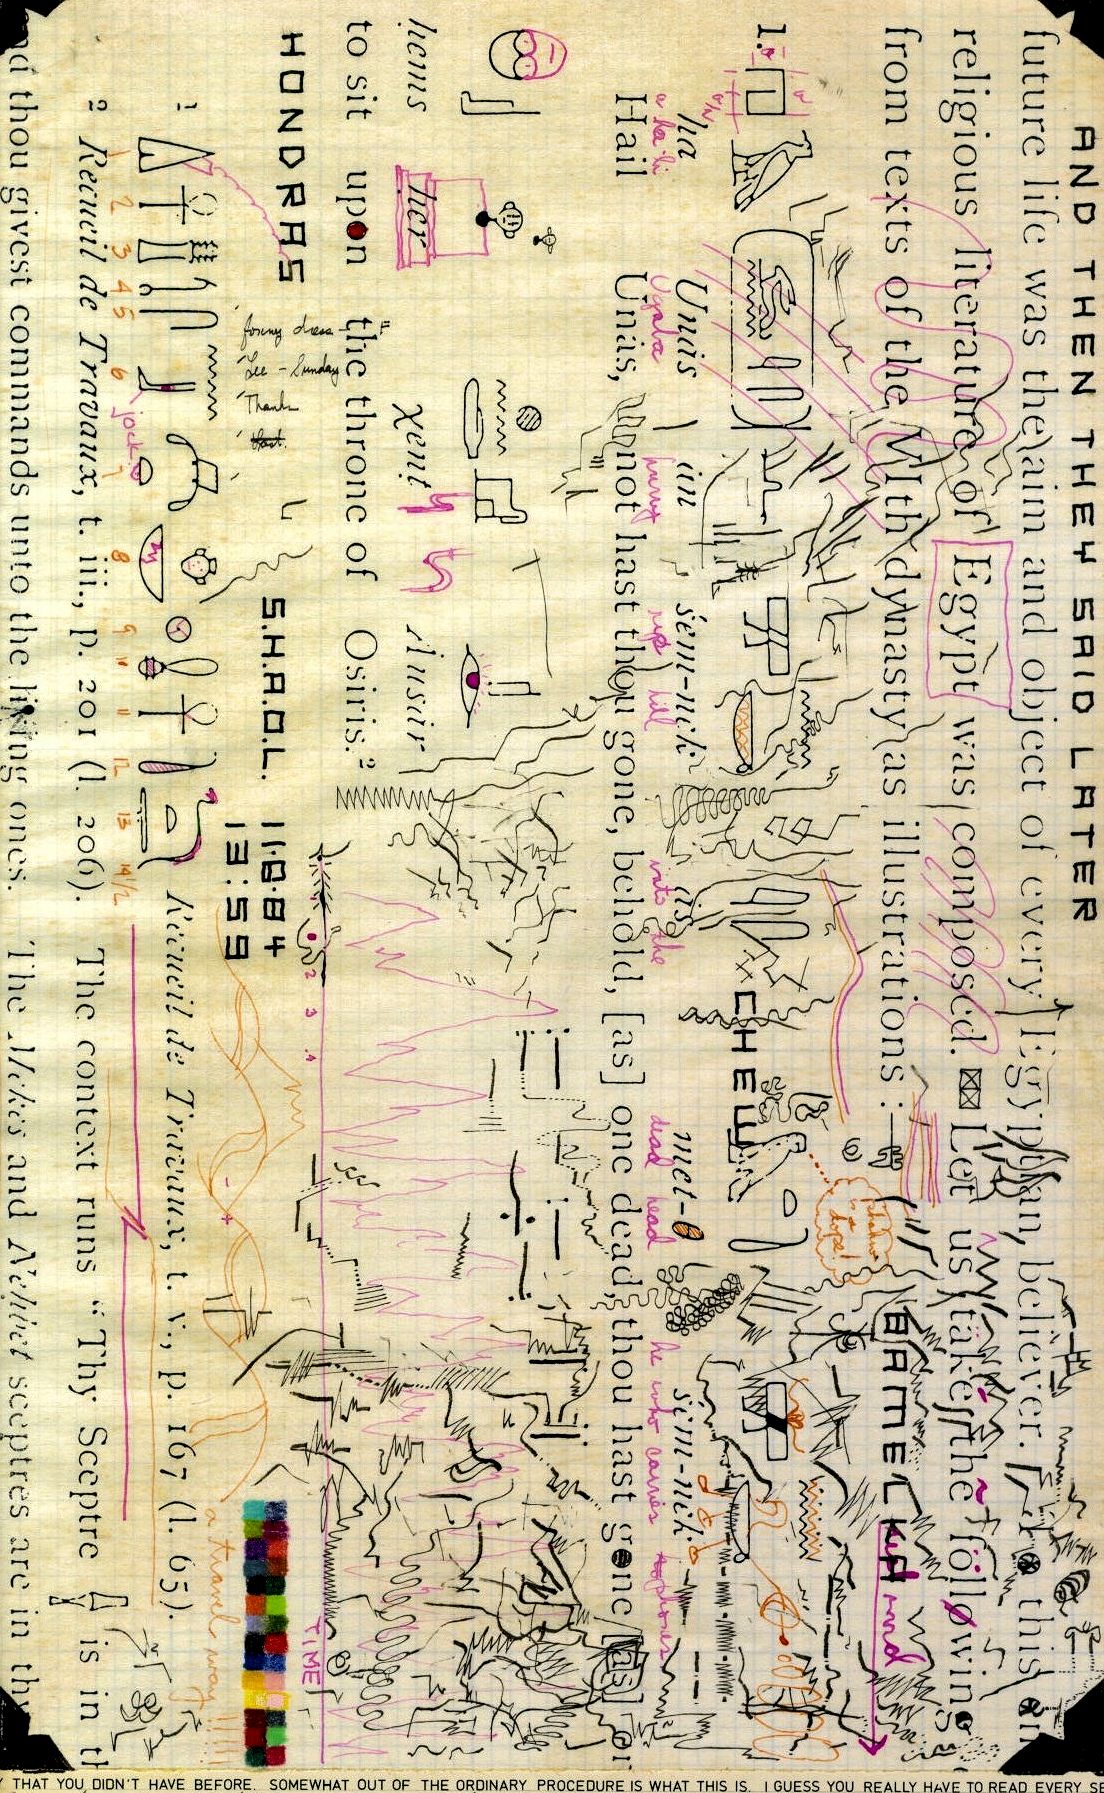 AND THEN THEY SAID LATER
future life was the aim and object of every Egyptian, believer. To this en
religious literature of Egypt was composed. Let us take the following
from texts of the VIth dynasty as illustrations :—
BAMELKA
CHEW
1.
ḥa Unás án sem-nek ás met-θ sem-nek
a ha hi Ugaba hurry up hill into the dead head he into carries
Hail Unás, not hast thou gone, behold, [as] one dead, thou hast gone [as] on
ḥems ḥer χent Ausár
to sit upon the throne of Osiris.²
HONDRAS
S.H.A.O.L. 11·8·84
13:59
Lee - Sunday
Thanks
2 3 4
TIME
a travel way
1 Recueil de Travaux, t. v., p. 167 (l. 65).
1 2 3 4 5 6 7 8 9 10 11 12 13 14 1/2
jack
2 Recueil de Travaux, t. iii., p. 201 (l. 206). The context runs "Thy Sceptre is in th
and thou givest commands unto the living ones. The Mekes and Neḥbet sceptres are in thy
Y THAT YOU DIDN'T HAVE BEFORE. SOMEWHAT OUT OF THE ORDINARY PROCEDURE IS WHAT THIS IS. I GUESS YOU REALLY HAVE TO READ EVERY SE